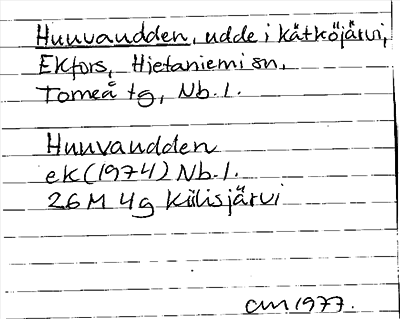 Huuvaudden, udde i Kätköjärvi,
Ekfors, Hjetaniemi sn,
Torneå tg, Nb. l.
Huuvaudden
ek (1974) Nb. l.
26 M 4g Kiilisjärvi
am 1977.